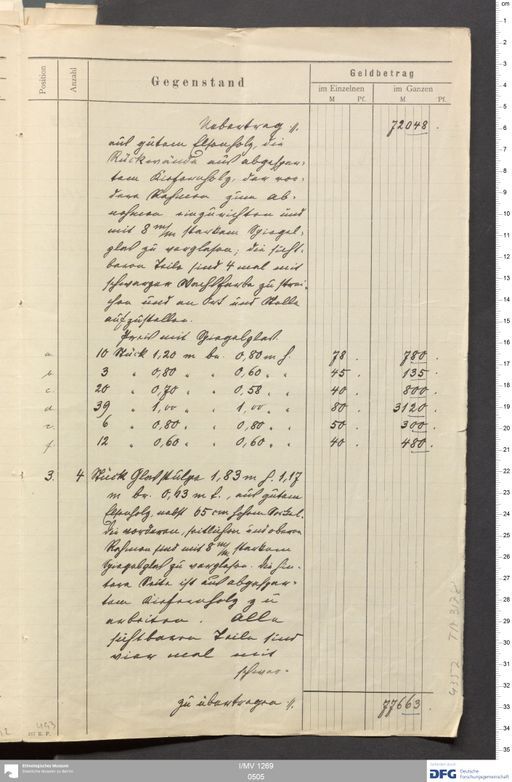 Position
Anzahl
Gegenstand
Geldbetrag
im Einzelnen
im Ganzen
M Pf. M Pf.
Uebertrag M. 72048 .
aus gutem Elsenholz, die
Rückwände aus abgesper-
tem Kiefernholz, der vor-
dere Rahmen zum ab-
nehmen einzurichten und
mit 8 m/m starkem Spiegel-
glas zu verglasen; die sicht-
baren Teile sind 4 mal mit
schwarzer Wachsfarbe zu strei-
chen und an Ort und Stelle
aufzustellen.
Preis mit Spiegelglas.
a 10 Stück 1,20 m br. 0,80 m h. 78 . 780 .
b 3 " 0,80 " " 0,60 " " 45 . 135 .
c. 20 " 0,70 " " 0,58 " " 40 . 800 .
d 39 " 1,00 " " 1,00 " " 80 . 3120 .
e. 6 " 0,80 " " 0,80 " " 50 . 300 .
f. 12 " 0,60 " " 0,60 " " 40 . 480 .
3. 4 Stück Glasstulpe 1,83 m h. 1,17
m br. 0,43 m t., aus gutem
Elsenholz, nebst 65 cm hohem Sockel.
Die vorderen, seitlichen und oberen
Rahmen sind mit 8 m/m starkem
Spiegelglas zu verglasen. Die hin-
tere Seite ist aus abgesper-
tem Kiefernholz zu
arbeiten. Alle
sichtbaren Teile sind
vier mal mit
schwar-
zu übertragen M. 77663 .
I/MV 1269
0505
Ethnologisches Museum
Staatliche Museen zu Berlin
DFG Deutsche
Forschungsgemeinschaft